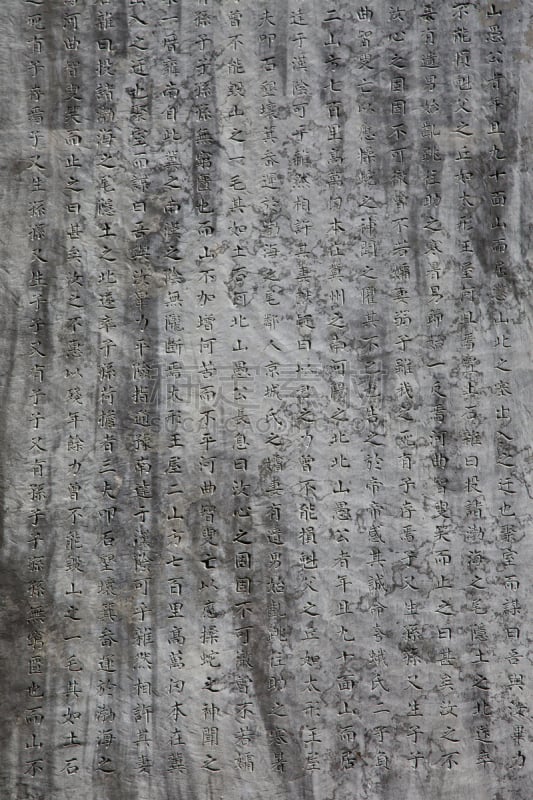 山愚公者年且九十面山而居懲山北之塞出入之迂也聚室而謀曰吾與汝畢力
不能損魁父之丘如太形王屋何且焉置土石雜曰投諸渤海之尾隱土之北遂率
妻有遺男始齔跳往助之寒暑易節始一反焉河曲智叟笑而止之曰甚矣汝之不
汝心之固固不可徹曾不若孀妻弱子雖我之死有子存焉子又生孫孫又生子子
曲智叟亡以應操蛇之神聞之懼其不已也告之於帝帝感其誠命夸娥氏二子負
二山方七百里高萬仞本在冀州之南河陽之北北山愚公者年且九十面山而居
達于漢陰可乎雜然相許其妻獻疑曰以君之力曾不能損魁父之丘如太形王屋
夫叩石墾壤箕畚運於渤海之尾鄰人京城氏之孀妻有遺男始齔跳往助之寒暑
曾不能毀山之一毛其如土石何北山愚公長息曰汝心之固固不可徹曾不若孀
有孫子子孫孫無窮匱也而山不加增何苦而不平河曲智叟亡以應操蛇之神聞之
一厝雍南自此冀之南漢之陰無隴斷焉太形王屋二山方七百里高萬仞本在冀
出入之迂也聚室而謀曰吾與汝畢力平險指通豫南達于漢陰可乎雜然相許其妻
石雜曰投諸渤海之尾隱土之北遂率子孫荷擔者三夫叩石墾壤箕畚運於渤海之
焉河曲智叟笑而止之曰甚矣汝之不惠以殘年餘力曾不能毀山之一毛其如土石
之死有子存焉子又生孫孫又生子子又有子子又有孫子子孫孫無窮匱也而山不